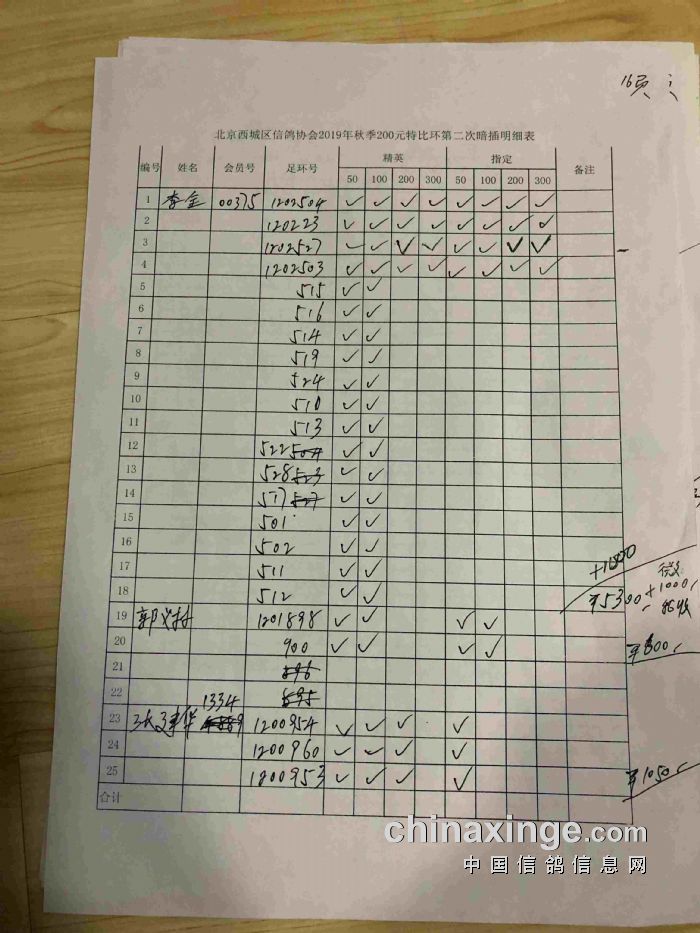 16页
北京西城区信鸽协会2019年秋季200元特比环第二次暗插明细表
编号 姓名 会员号 足环号 精英 指定 备注
50 100 200 300 50 100 200 300
1 李金 00375 1202504 ✓ ✓ ✓ ✓ ✓ ✓ ✓ ✓
2 120223 ✓ ✓ ✓ ✓ ✓ ✓ ✓ ✓
3 1202527 ✓ ✓ ✓ ✓ ✓ ✓ ✓ ✓
4 1202503 ✓ ✓ ✓ ✓ ✓ ✓ ✓ ✓
5 515 ✓ ✓
6 516 ✓ ✓
7 514 ✓ ✓
8 519 ✓ ✓
9 524 ✓ ✓
10 510 ✓ ✓
11 513 ✓ ✓
12 522 504 ✓ ✓
13 528 523 ✓ ✓
14 517 527 ✓ ✓
15 501 ✓ ✓
16 502 ✓ ✓
17 511 ✓ ✓
+1000
微
18 512 ✓ ✓ ¥5300 +1000
19 1201898 ✓ ✓ ✓ ✓
20 900 ✓ ✓ ✓ ✓ ¥600
21 896
22 895
1334
23 1200954 ✓ ✓ ✓ ✓
24 1200960 ✓ ✓ ✓ ✓
25 1200953 ✓ ✓ ✓ ✓ ¥1050
合计
chinaxinge.com
中国信鸽信息网